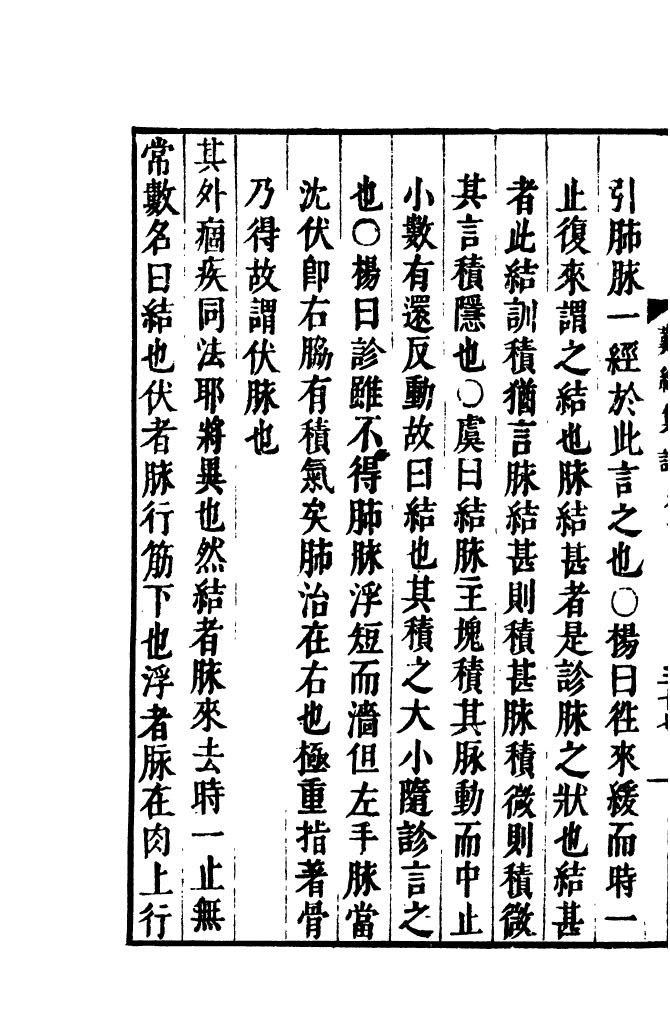 難經集註
引肺脉一經於此言之也○楊曰徃來緩而時一
止復來謂之結也脉結甚者是診脉之狀也結甚
者此結訓積猶言脉結甚則積甚脉積微則積微
其言積隱也○虞曰結脉主塊積其脉動而中止
小數有還反動故曰結也其積之大小隨診言之
也○楊曰診雖不得肺脉浮短而濇但左手脉當
沈伏卽右脇有積氣矣肺治在右也極重指著骨
乃得故謂伏脉也
其外痼疾同法耶將異也然結者脉來去時一止無
常數名曰結也伏者脉行筋下也浮者脉在肉上行